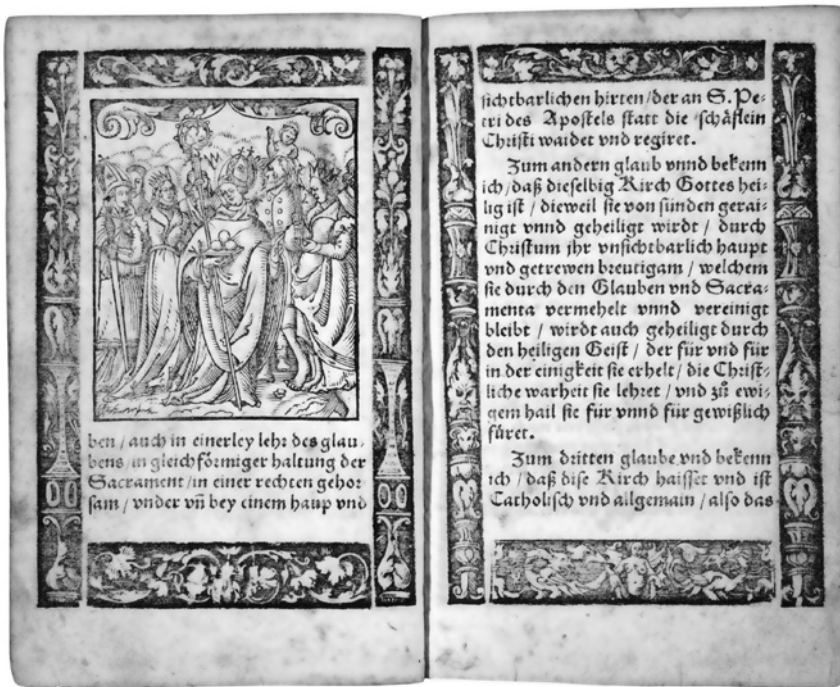 ben / auch in einerley lehr des glau-
bens / in gleichförmiger haltung der
Sacrament / in einer rechten gehor-
sam / vnder vñ bey einem haup vnd
sichtbarlichen hirten / der an S. Pe-
tri des Apostels statt die schäflein
Christi waidet vnd regiret.
Zum andern glaub vnnd bekenn
ich / daß dieselbig Kirch Gottes hei-
lig ist / dieweil sie von sünden gerai-
nigt vnnd geheiligt wirdt / durch
Christum jhr vnsichtbarlich haupt
vnd getrewen breutigam / welchem
sie durch den Glauben vnd Sacra-
menta vermehelt vnnd vereinigt
bleibt / wirdt auch geheiligt durch
den heiligen Geist / der für vnd für
in der einigkeit sie erhelt / die Christ-
liche warheit sie lehret / vnd zů ewi-
gem hail sie für vnnd für gewißlich
füret.
Zum dritten glaube vnd bekenn
ich / daß dise Kirch haisset vnd ist
Catholisch vnd allgemain / also das